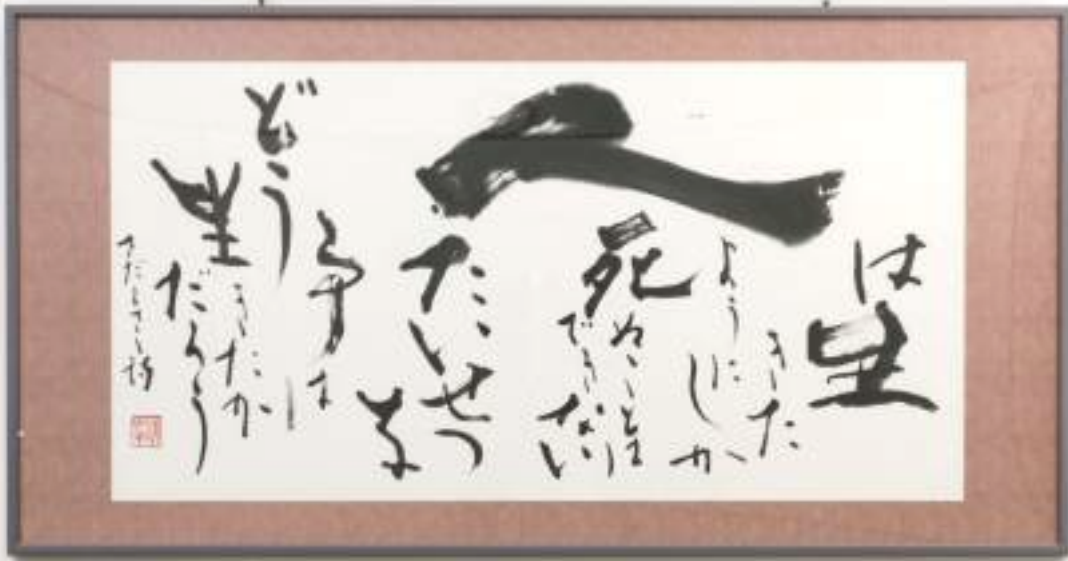 人
は生
きた
ように
しか
死ぬことは
できない
たいせつ
な
事は
どう
生きたか
だろう
詩